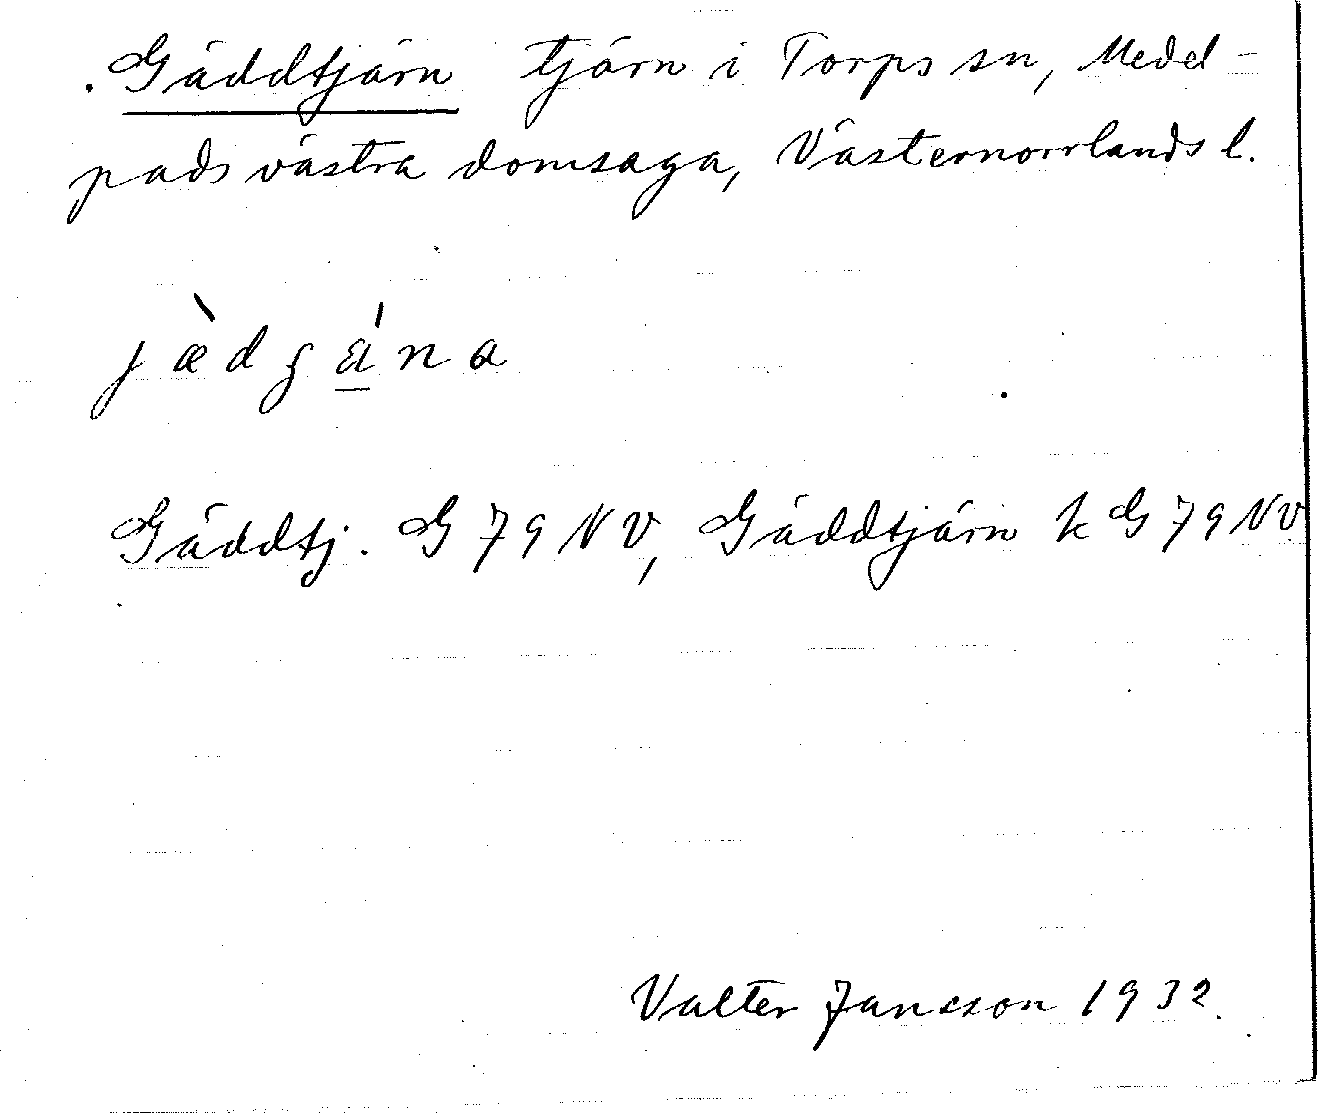 Gäddtjärn tjärn i Torps sn, Medel-
pads västra domsaga, Västernorrlands l.
Gäddtj. G 79 NV, Gäddtjärn k G 79 NV
Valter Jansson 1932.